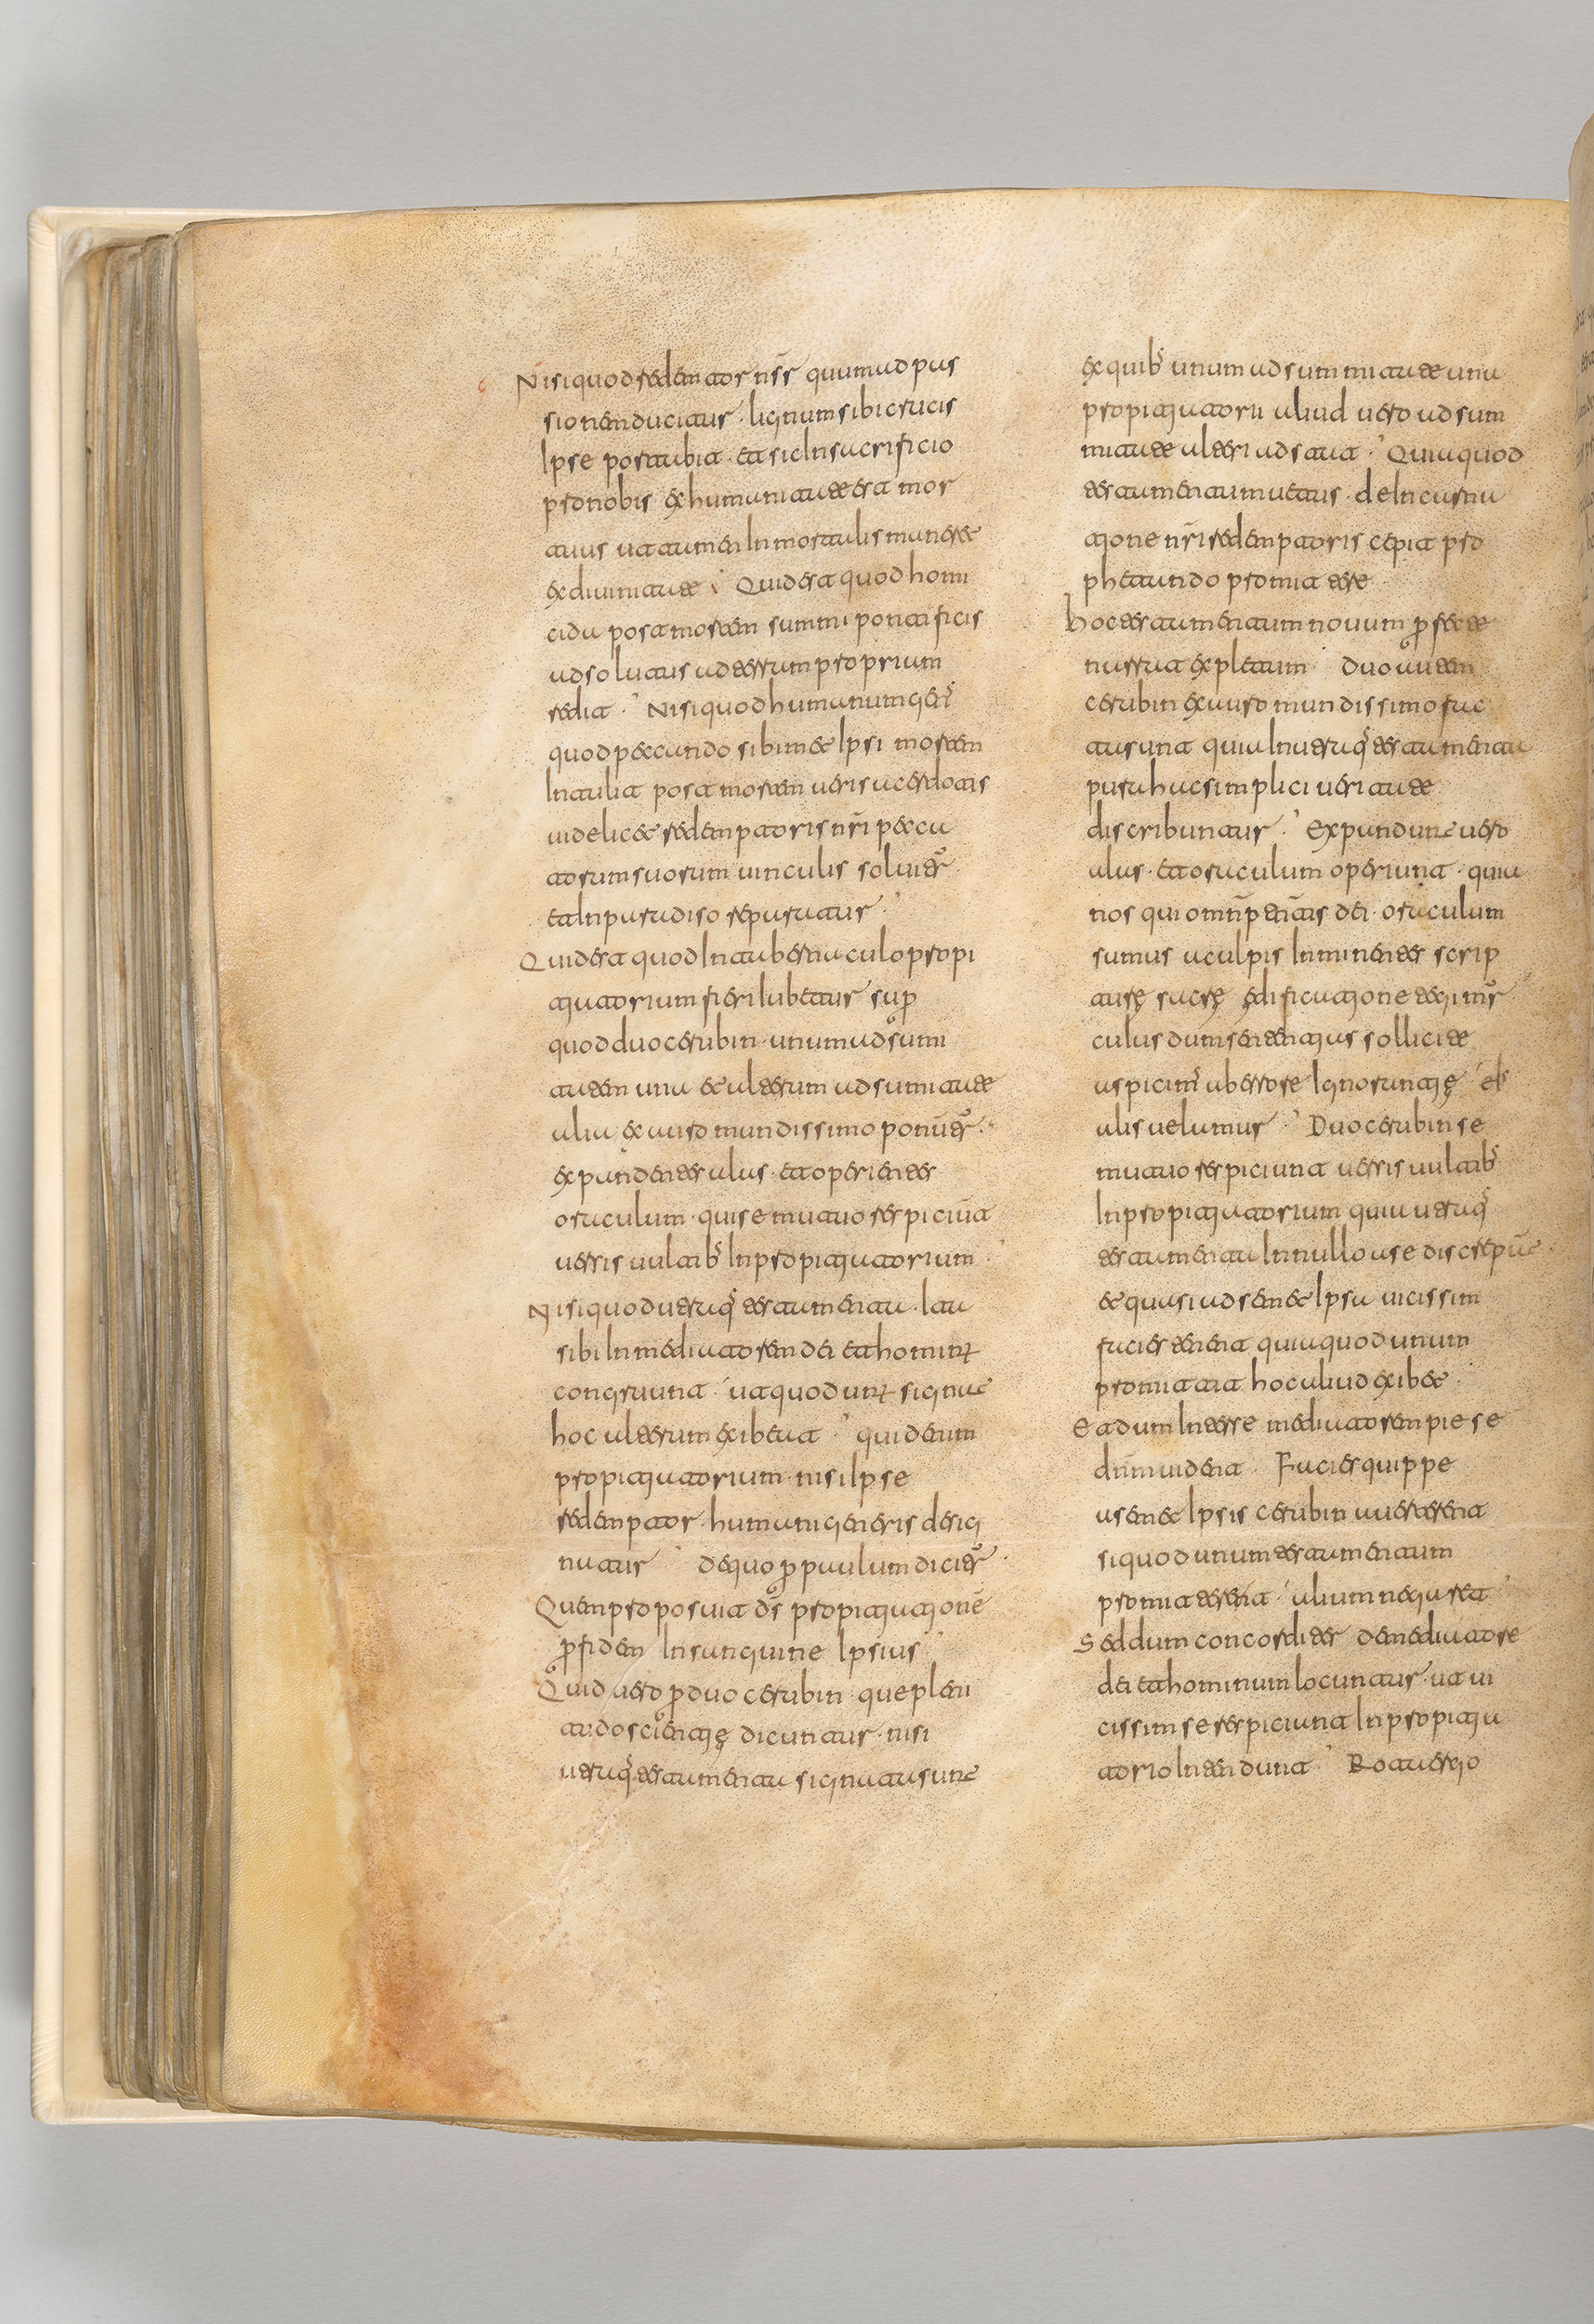 Nisi quod redemtor nsr̄ quum ad pas
sionem ducitur · lignum sibi crucis
Ipse portabit · et sic In sacrificio
pro nobis ex humanitate est mor
tuus ut tamen In mortalis maneret
ex diuinitate ; Quid est quod homi
cida post mortem summi pontificis
absolutus ad terram propriam
redit · Nisi quod humanum genˢ
quod peccando sibimet Ipsi mortem
Intulit post mortem ueri sacerdotis
uidelicet redemptoris nr̄i pecca
torum suorum uinculis soluitᷣ
et In paradiso reparatur ·
Quid est quod In tabernaculo propi
tiatorium fieri Iubetur sup̄
quod duo cerubin · unum ad sum̄i
tatem una et alterum ad sum̄itate
alia ex auro mundissimo ponūtᷣ ·
expandentes alas · et operientes
oraculum · qui se mutuo respiciūt
uersis uultibˢ In propitiatorium ·
Nisi quod utraqˢ testamenta · Ita
sibi In mediatorem dei et hominū
congruunt · ut quod unū signat
hoc alterum exibeat · quid enim
propitiatorium · nisi Ipse
redemptor · humani generis desig
natur · de quo p̄ paulum dicitᷣ ·
Quem proposuit ds̄ propitiationē
p̄ fidem In sanguine Ipsius ·
Quid uero p̄ duo cerubin · que pleni
tudo scientię dicuntur · nisi
utraqˢ testamenta signatur sunt
ex quibˢ unum ad summitate una
propitiatorii aliud uero ad sum
mitate alteri adstat · Quia quod
testamentum uetus · de Incarna
tione nr̄i redemptoris cepit pro
phetando promittere ·
hoc testamentum nouum p̄fecte
narrat expletum · duo autem
cerubin ex auro mundissimo fac
ta sunt quia In utraqˢ testamenta
pura hac simplici ueritate
discribuntur · Expandunt uero
alas · et oraculum operiunt · quia
nos qui omnip̄entis dei · oraculum
sumus a culpis Inminentes scrip
turę sacrę edificatione tegimᷣ
cuius dum sententias sollicite
aspicimˢ ab errore Ignorantię eiˢ
alis uelamur · Duo cerubin se
mutuo respiciunt uersis uultibˢ
In propitiatorium quia utraqˢ
testamenta In nullo a se discrepāt ·
et quasi ad semet Ipsa uicissim
facies tenent quia quod unum
promittit hoc aliud exibet ·
Et dum In esse mediatorem pie se
dnm̄ uident · Facies quippe
a semet Ipsis cerubin auerterent
si quod unum testamentum
promitterent alium negaret ·
Sed dum concorditer de mediatore
dei et hominum locuntur · ut ui
cissim se respiciunt In propitia
torio Intendunt · Rota ergo